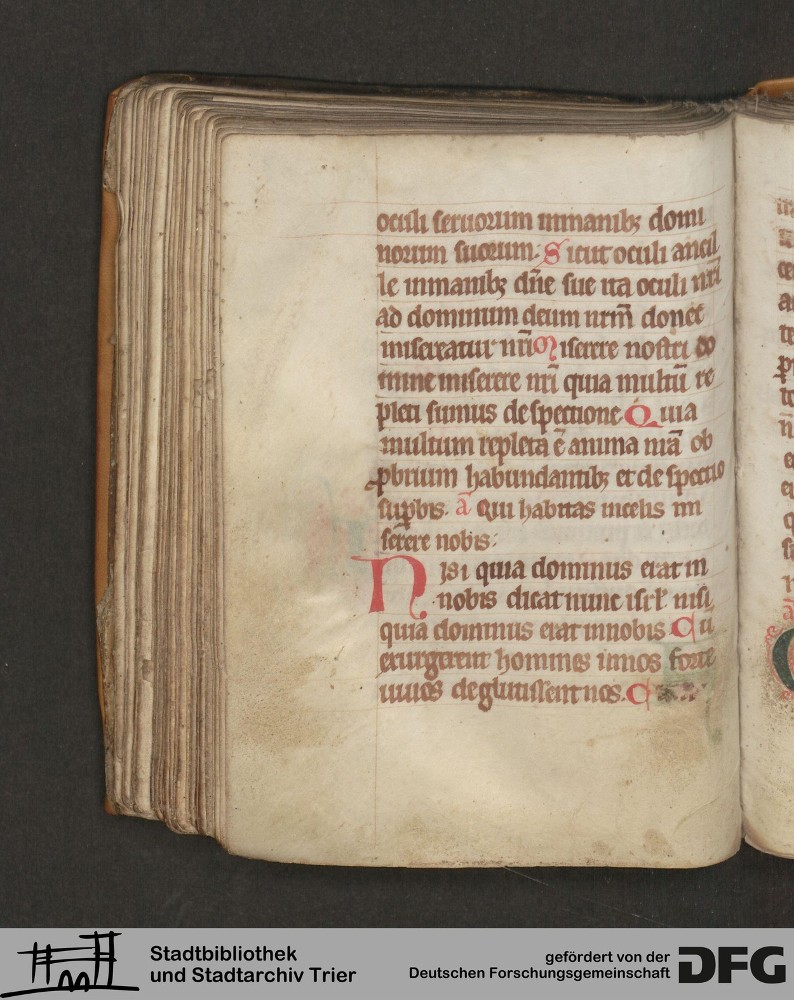 oculi seruorum inmanibꝫ domi
norum suorum. Sicut oculi ancil
le inmanibꝫ dn̄e sue ita oculi nr̄i
ad dominum deum nrm̄ donec
misereatur nr̄i Miserere nostri do
mine miserere nr̄i quia multū re
pleti sumus despectione Quia
multum repleta ē anima nr̄a ob
ꝓbrium habundantibꝫ et despectio
suꝑbis. a̅ Qui habitas incelis mi
serere nobis.
Nisi quia dominus erat in
nobis dicat nunc isrl̄ nisi
quia dominus erat innobis Cū
exurgerent homines innos forte
uiuos deglutissent nos. C
Stadtbibliothek
und Stadtarchiv Trier
gefördert von der
Deutschen Forschungsgemeinschaft
DFG